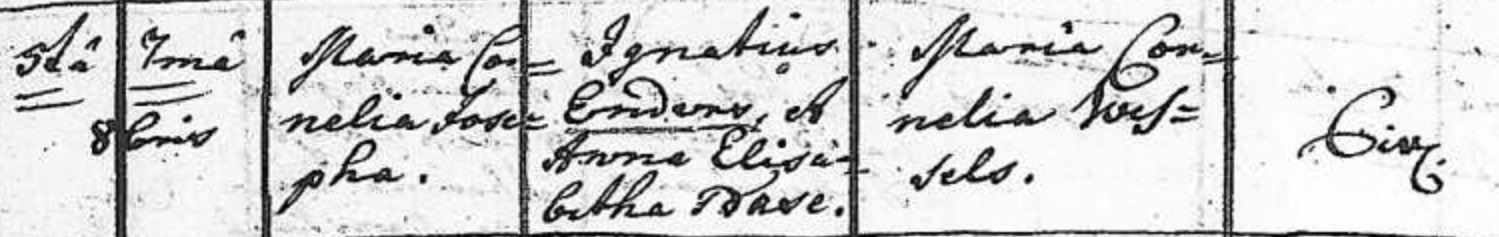 5tâ
7mâ
8bris
Maria Cor=
nelia Jose=
pha.
Ignatius
Enders, et
Anna Elisa=
betha Dase.
Maria Cor=
nelia Wes=
sels.
Civ.